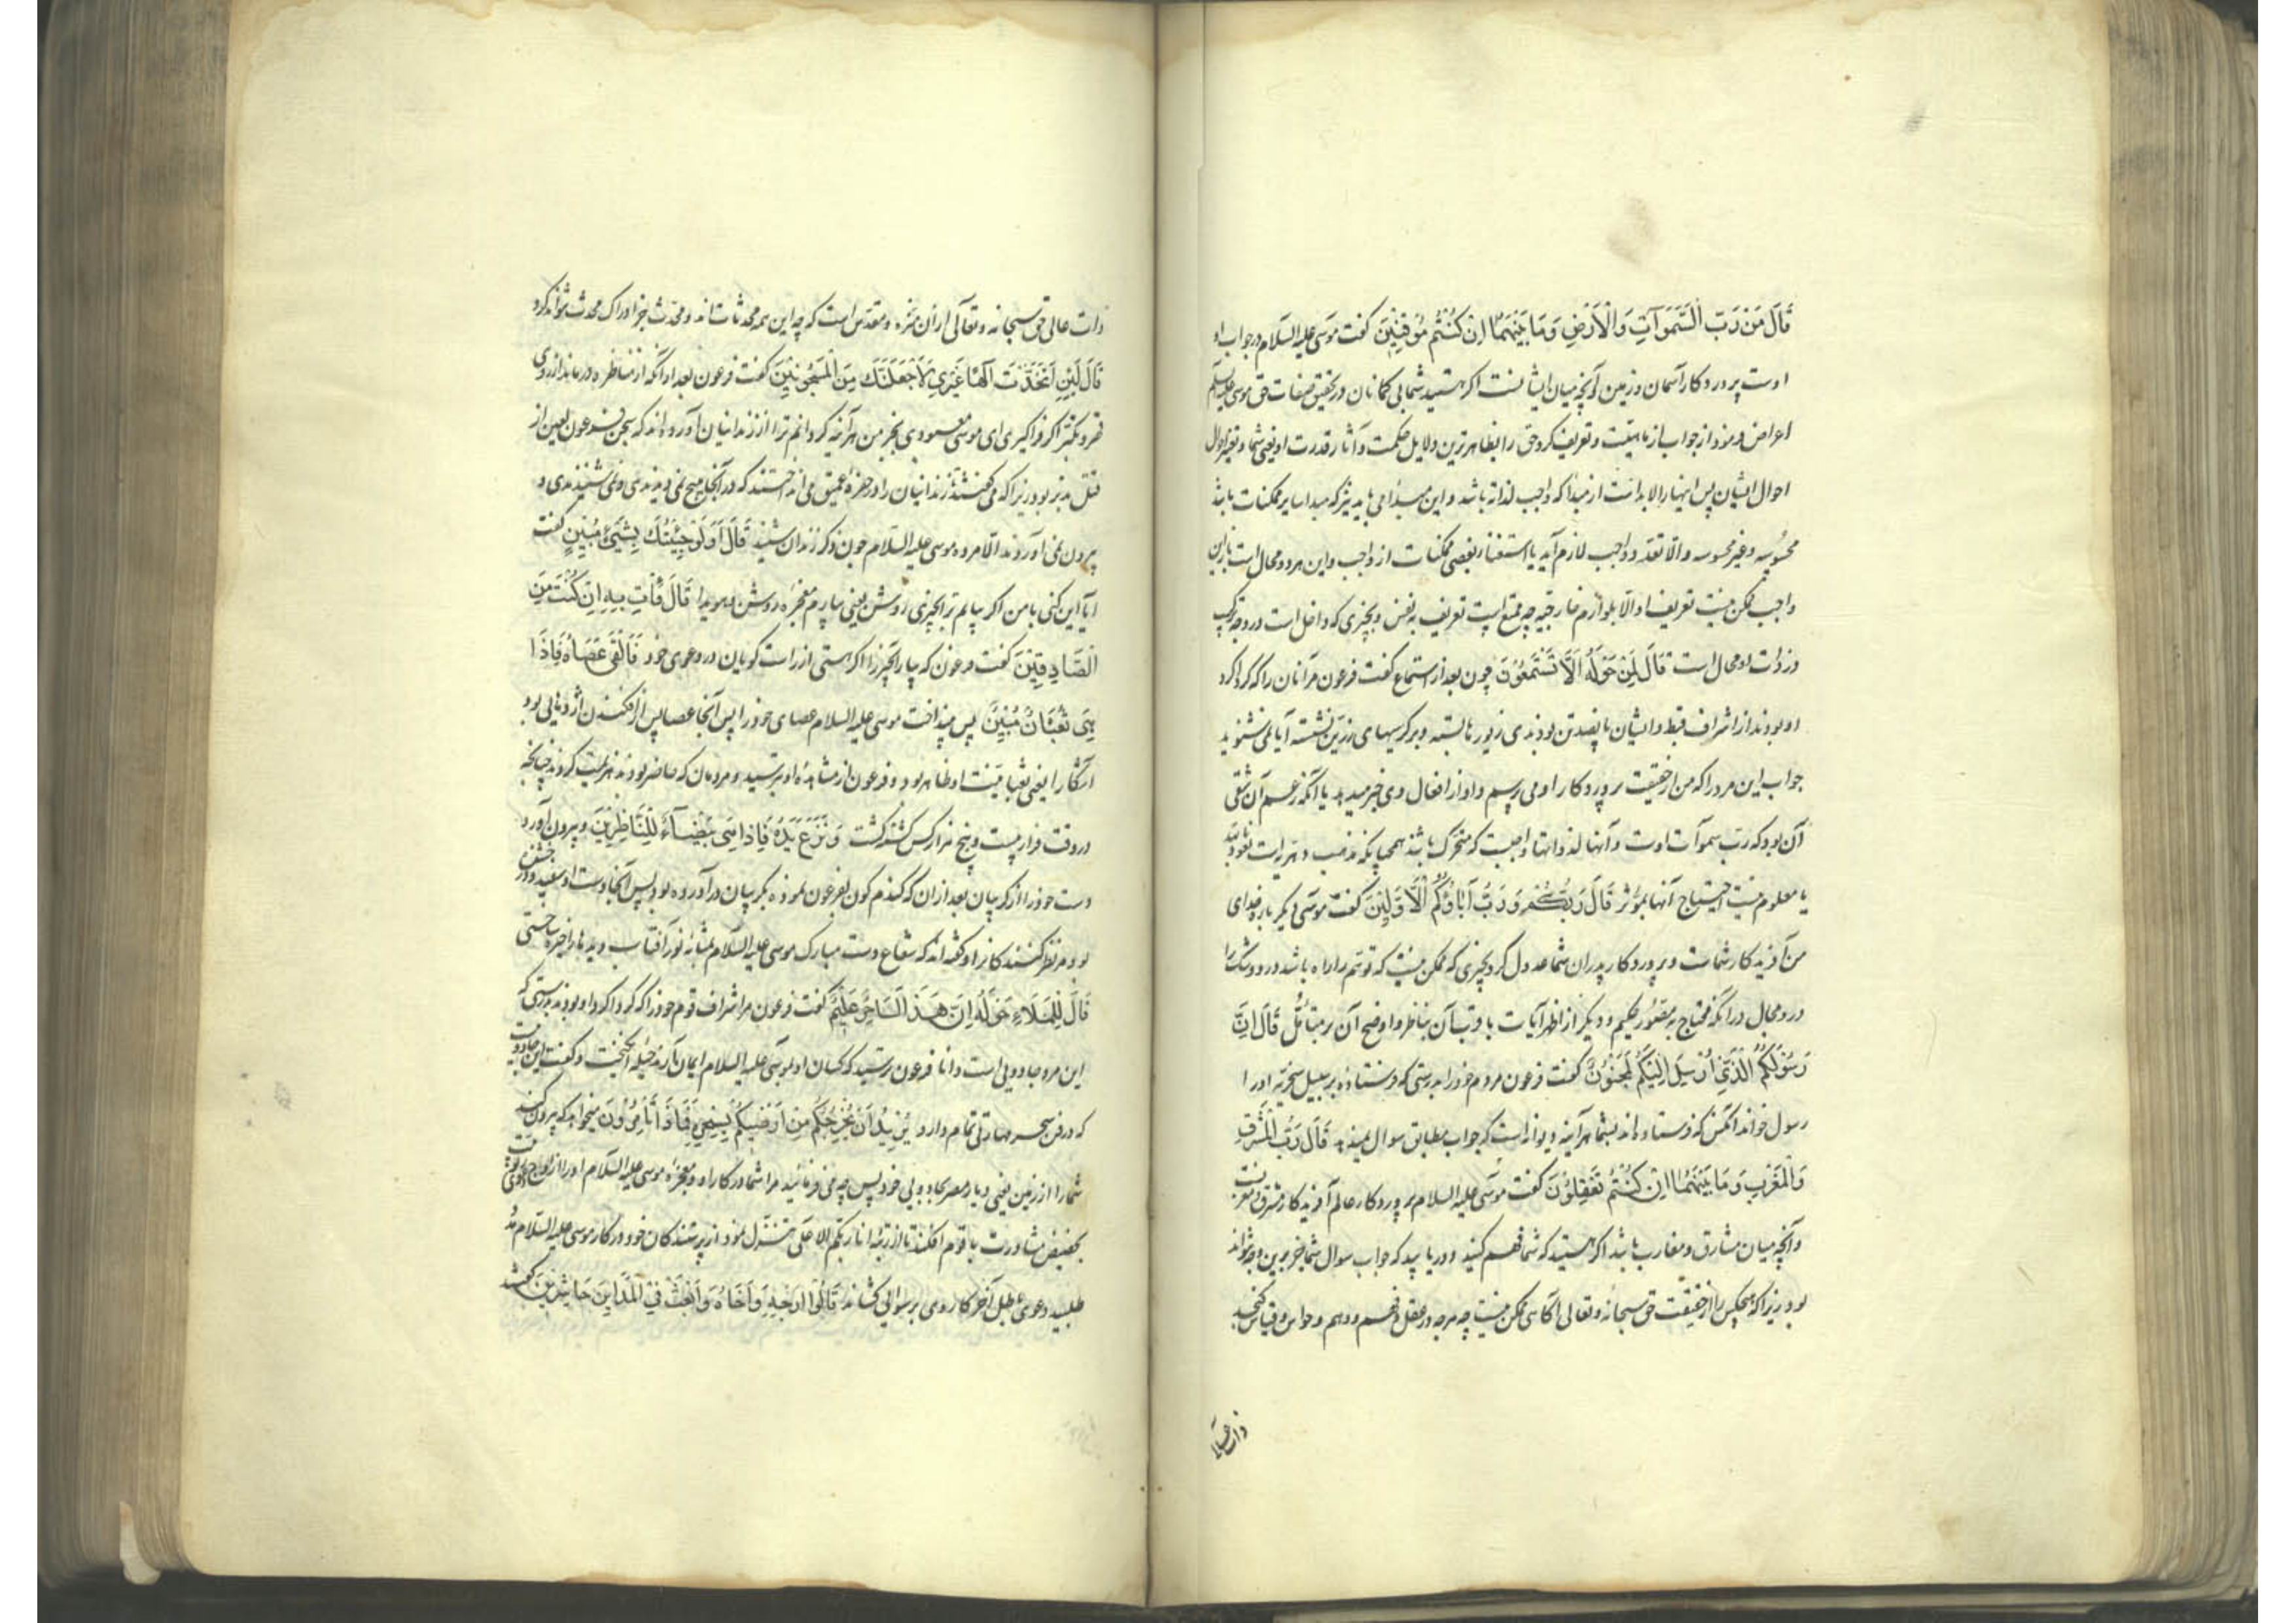 قَالَ مَنْ رَبّ السَّمَوَاتِ وَالْاَرْضِ وَمَا بَيْنَهُمَا اِنْ كُنْتُمْ مُوقِنِيْنَ گفت موسی علیه السلام در جواب او
اوست پروردگار آسمان و زمین و آنچه میان ایشانست اگر هستید شما بی کمانان در تحقیق صفات حق موسی علیه السلم
اعراض نمود از جواب از ماهیّت و تعریف کرد حق را بظاهرترین دلایل حکمت و آثار قدرت او یعنی شما و تغیر احوال
احوال ایشان پس اینها را لابدانست از مبداء که واجب لذاته باشد و این مبداء می باید نیز که مبداء سایر ممکنات باشد
محسوسه و غیر محسوسه و الّا تعدد واجب لازم آید یا استغناء بعضی ممکنات از واجب و این هر دو محال است
واجب ممکن نیست تعریف او الّا بلوازم خارجیه چه ممتنع است تعریف به نفس و بچیزی که داخل است در وی
در ذات او محال است قَالَ لِمَنْ حَوْلَهُ اَلَا تَسْتَمِعُوْنَ چون بعد از استماع گفت فرعون مر آنان را که گرداگرد
او بودند از اشراف قبط و ایشان پانصد تن بودند زیورها بسته و بر کرسیهای زرّین نشسته آیا نمی شنوید
جواب این مرد را که من از حقیقت پروردگار او می پرسم و او از افعال وی خبر میدهد یا آنکه زعم آن شقی
آن بود که ربّ سموات اوست و آنها لذواتها واجبست که متحرک باشند همچنانکه مذهب دهریه است نعوذ بالله
یا معلوم نیست احتیاج آنها بمؤثر قَالَ رَبُّكُمْ وَرَبُّ اٰبَائِكُمُ الْاَوَّلِيْنَ گفت موسی دیگر بار خدای
من آفریدگار شماست و پروردگار پدران شما عدول کرد بچیزی که ممکن نیست که توهم را راه باشد در او و شک را
در و مجال در آنکه محتاج به مصور حکیم و دیگر از اظهر آیات با و تب آن بناظر و اوضح آن بر متأمّل قَالَ اِنَّ
رَسُوْلَكُمُ الَّذِيْ اُرْسِلَ اِلَيْكُمْ لَمَجْنُوْنٌ گفت فرعون مردم خود را بدرستی که فرستاده بر سبیل سخریّه او را
رسول خواند آنکس که فرستاده اند بشما هر آینه دیوانه است که جواب مطابق سوال نمیدهد قَالَ رَبُّ الْمَشْرِقِ
وَالْمَغْرِبِ وَمَا بَيْنَهُمَا اِنْ كُنْتُمْ تَعْقِلُوْنَ گفت موسی علیه السلام پروردگار عالم آفریدگار مشرق و مغربست
و آنچه میان مشارق و مغارب باشد اگر هستید که شما فهم کنید و دریابید که جواب سوال شما جز برین وجه نتواند
بود زیرا که هیچکس را از حقیقت حق سبحانه و تعالی آگاهی ممکن نیست چه هر چه در عقل و فهم و وهم و حواس و قیاس گنجد
ذات عالی
ذات عالی حق سبحانه و تعالی از آن منزه و مقدس است که چه این همه محدثات اند و محدث جز ادراک محدث نتواند کرد
قَالَ لَئِنِ اتَّخَذْتَ اِلٰهًا غَيْرِي لَاَجْعَلَنَّكَ مِنَ الْمَسْجُونِيْنَ گفت فرعون بعد از آنکه از مناظره درماند از روی
قهر و تکبّر اگر فراگیری ای موسی معبودی بجز من هر آینه گردانم ترا از زندانیان آورده اند که سجن فرعون لعین از
قتل بدتر بود زیرا که می گفتند زندانیان را در حفره عمیق می انداختند که در آنجا هیچ نمی دیدندی و نمی شنیدندی و
بیرون نمی آوردند الّا مرده موسی علیه السلام چون ذکر زندان شنید قَالَ اَوَلَوْ جِئْتُكَ بِشَيْءٍ مُبِيْنٍ گفت
آیا این کنی با من اگر بیایم ترا بچیزی روشن یعنی بیارم معجزه روشن و هویدا قَالَ فَأْتِ بِهِ اِنْ كُنْتَ مِنَ
الصَّادِقِيْنَ گفت فرعون که بیار آن چیز را اگر هستی از راست گویان در دعوی خود فَاَلْقٰى عَصَاهُ فَاِذَا
هِيَ ثُعْبَانٌ مُبِيْنٌ پس بینداخت موسی علیه السلام عصای خود را پس آنجا عصا پس از افکندن اژدهایی بود
آشکارا یعنی ثعبانیّت او ظاهر بود و فرعون از مشاهده او بترسید و مردمان که حاضر بودند هزیمت کردند چنانچه
در وقت فرار بیست و پنج هزار کس کشته گشت وَنَزَعَ يَدَهُ فَاِذَا هِيَ بَيْضَاءُ لِلنَّاظِرِيْنَ و بیرون آورد
دست خود را از گریبان بعد از آن که گندم گون بفرعون نموده بگریبان درآورده بود پس آنجا دست او سفید و درخشان
بود مر نظر کنندگان را و گفته اند که شعاع دست مبارک موسی علیه السلام بمثابه نور آفتاب دیده ها را خیره ساختی
قَالَ لِلْمَلَاءِ حَوْلَهُ اِنَّ هٰذَا لَسَاحِرٌ عَلِيْمٌ گفت فرعون مر اشراف قوم خود را که گرداگرد او بودند بدرستی که
این مرد جادویی است دانا فرعون ترسید که کسان او بموسی علیه السلام ایمان آرند حیله انگیخت و گفت این جادویست
که در فن سحر مهارتی تمام دارد يُرِيْدُ اَنْ يُخْرِجَكُمْ مِنْ اَرْضِكُمْ بِسِحْرِهِ فَمَاذَا تَأْمُرُوْنَ میخواهد که بیرون کند
شما را از زمین یعنی دیار مصر بجادویی خود پس چه می فرمائید مرا شما در کار او و معجزه موسی علیه السلام او را از اوج دعوی
بحضیض مشاورت با قوم افکند تا از رتبه انا ربکم الاعلی تنزل نمود از پرستندگان خود در کار موسی علیه السلام مدد
طلبید دعوی باطل آخر کار روی برسوایی کشاند قَالُوْا اَرْجِهْ وَاَخَاهُ وَابْعَثْ فِي الْمَدَايِنِ حَاشِرِيْنَ گفتند